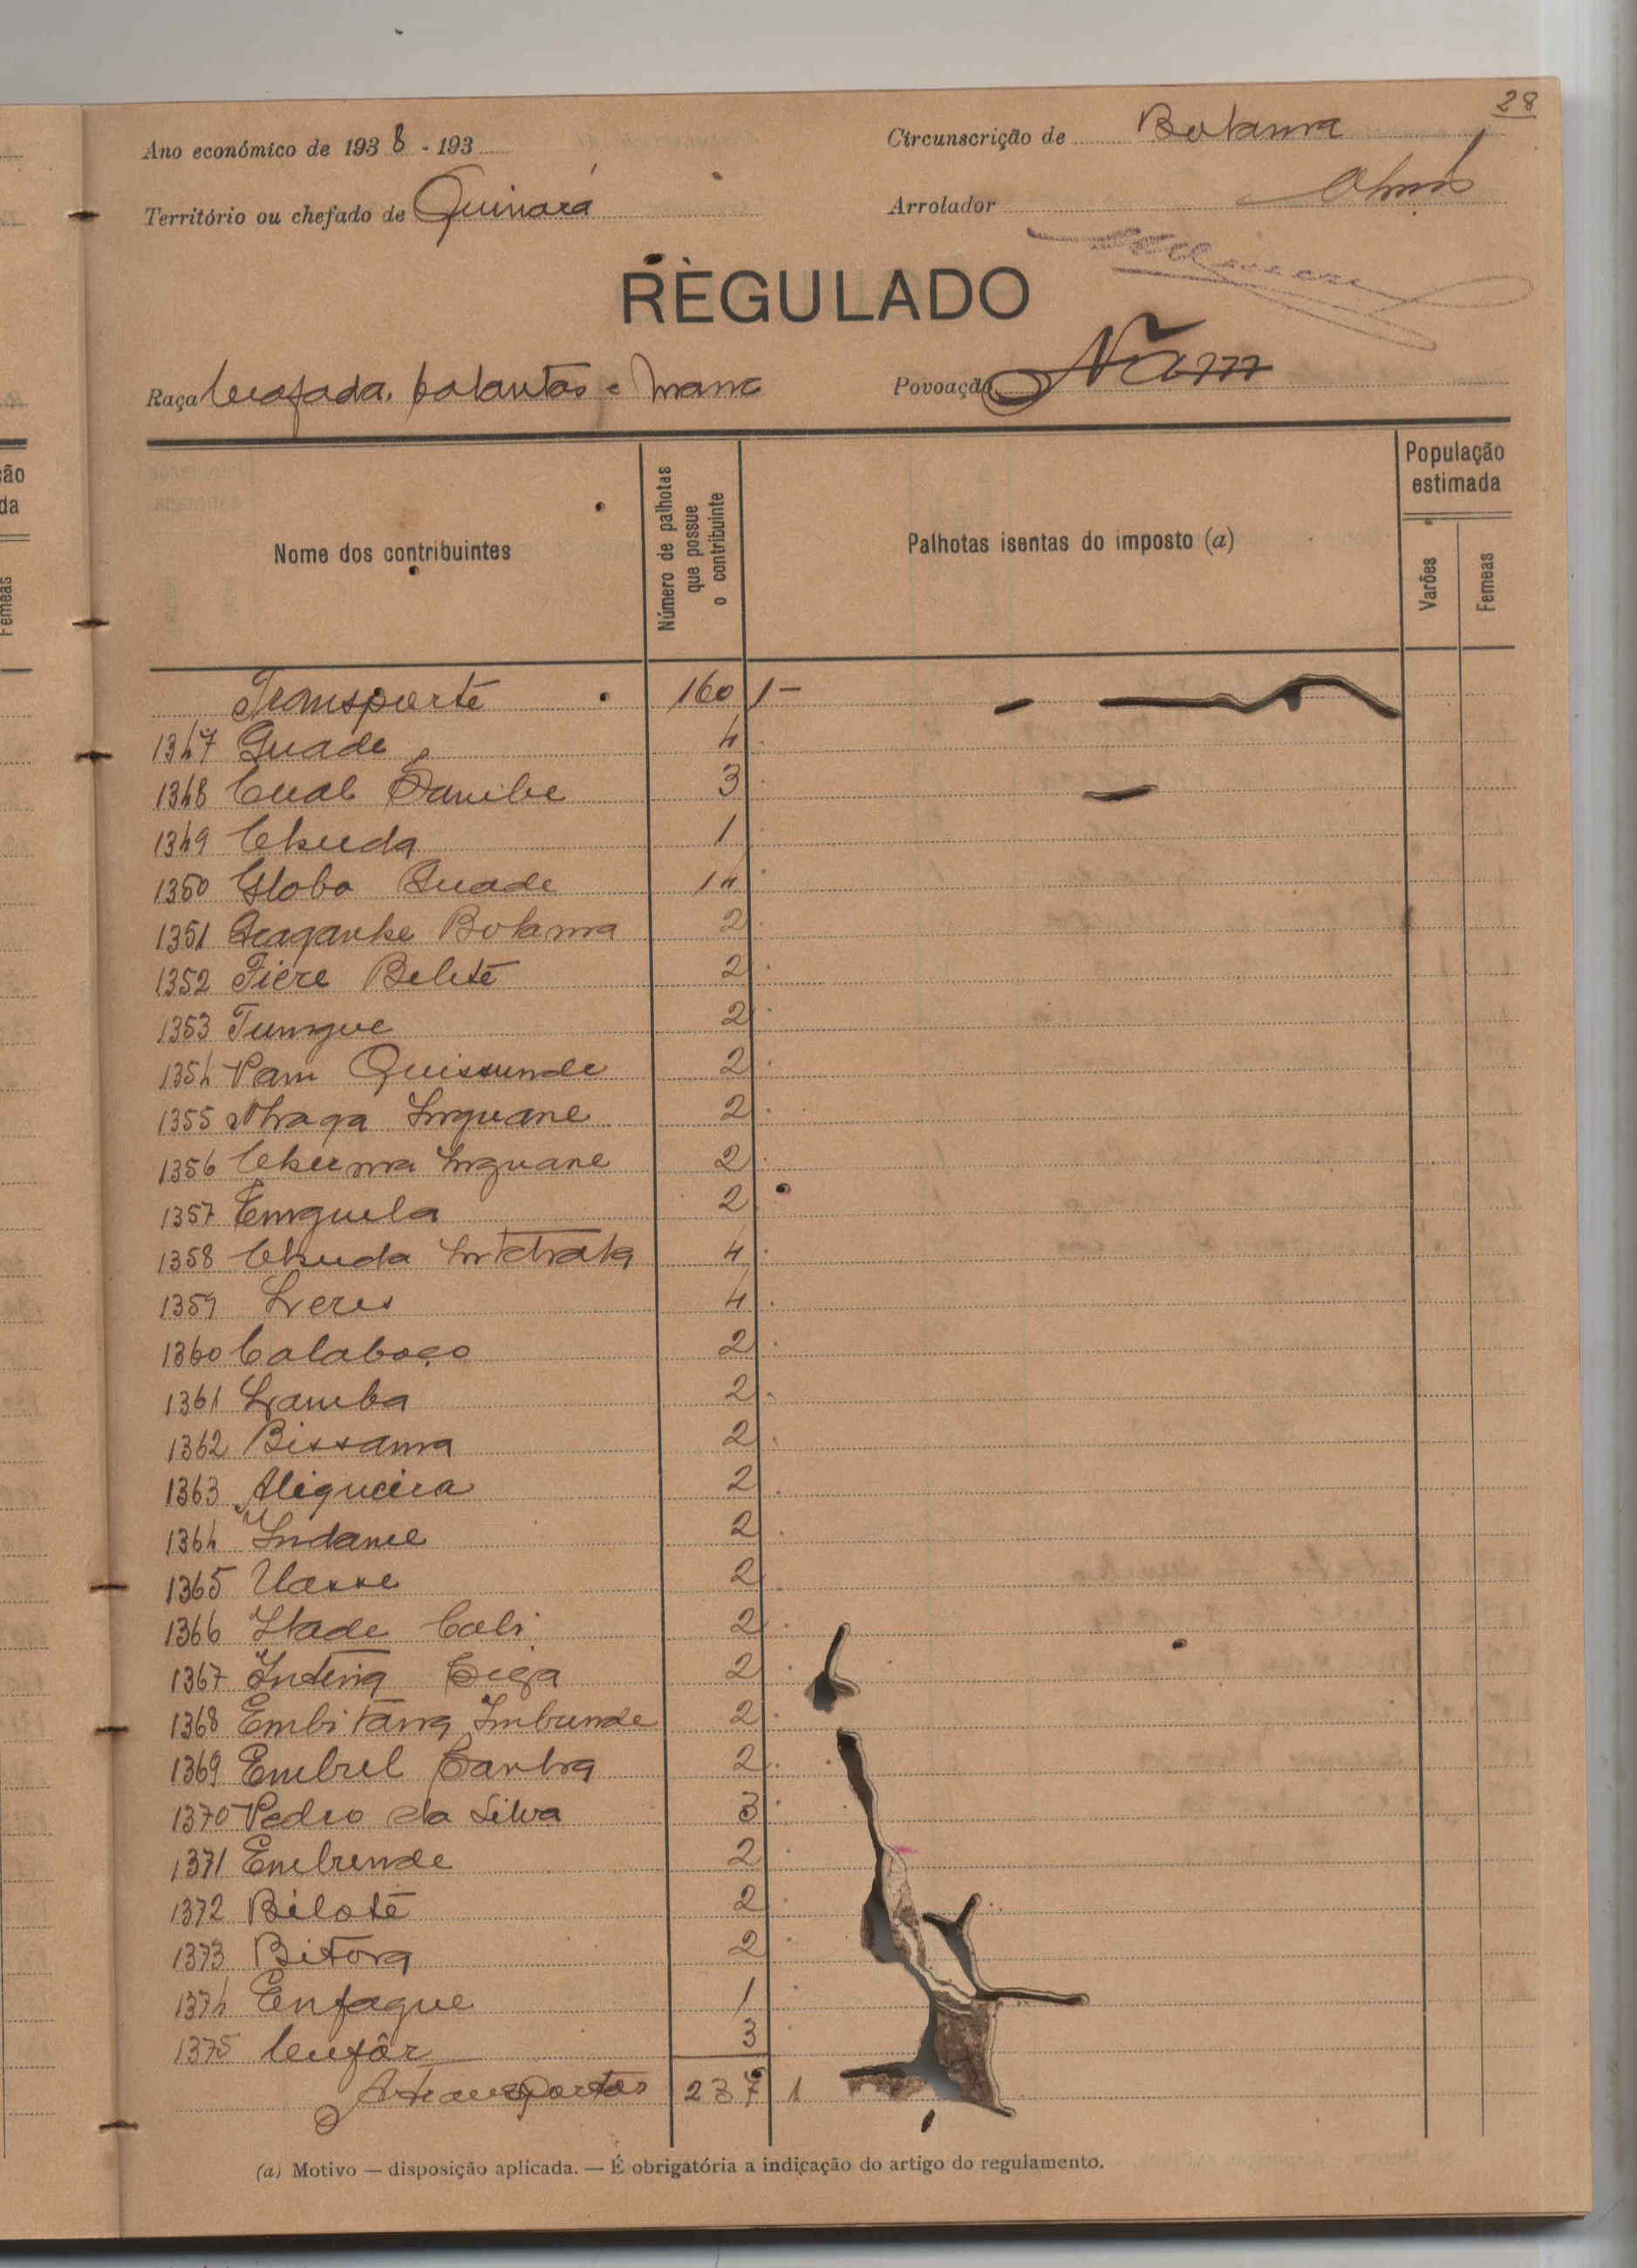 28
Ano económico de 1938 - 193
Circunscrição de Bolama
Território ou chefado de Quinará
Arrolador
REGULADO
Raça beafada, balantas e manc
Povoação Nãm
Nome dos contribuintes
Número de palhotas que possue o contribuinte
Palhotas isentas do imposto (a)
População estimada
Varões
Femeas
Transporte 160 1 -
1347 Quade 4
1348 Cual Dambe 3
1349 Chuda 1
1350 Globo Quade 14
1351 Bolama 2
1352 Fiere Belete 2
1353 Tungue 2
1354 Pam Quissunde 2
1355 Nhaga Inguane 2
1356 Inguane 2
1357 Enguela 2
1358 Chuda 4
1359 4
1360 Calaboço 2
1361 2
1362 Bissama 2
1363 Aligueira 2
1364 Indame 2
1365 Uasse 2
1366 Stade Cali 2
1367 2
1368 Imbunde 2
1369 2
1370 Pedro da Silva 3
1371 Embunde 2
1372 Biloté 2
1373 Bitong 2
1374 Enfaque 1
1375 3
A transportar 237 1
(a) Motivo — disposição aplicada. — É obrigatória a indicação do artigo do regulamento.
ão
da
Femeas